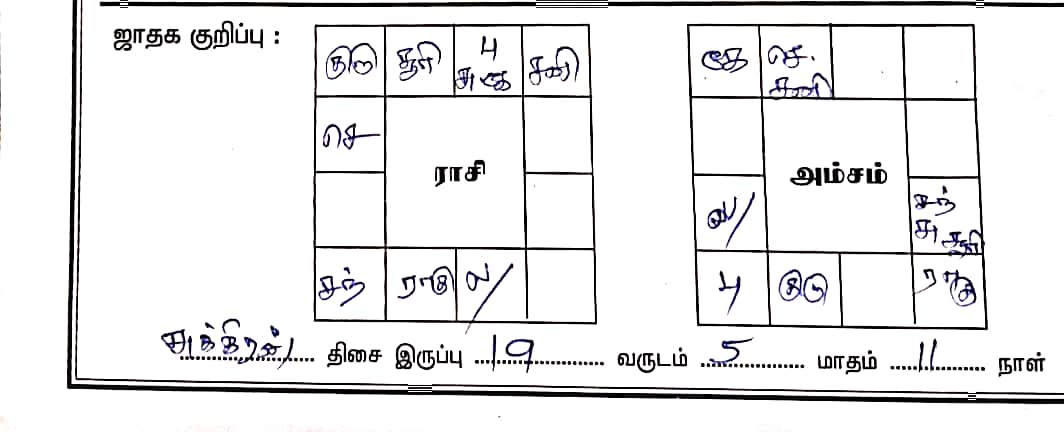 ஜாதக குறிப்பு :
குரு சூரி பு சுகே சனி
செ
ராசி
சந் ராகு ல/
கே செ. சனி
அம்சம்
ல/ சந் சு சூரி
பு குரு ராகு
சுக்கிரன் திசை இருப்பு 19 வருடம் 5 மாதம் 11 நாள்